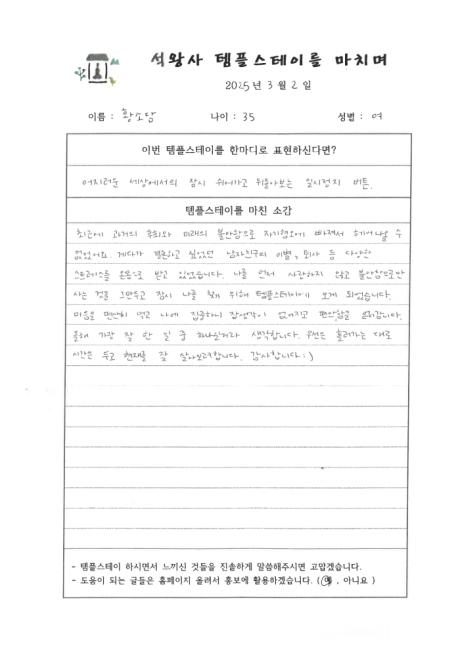 석왕사 템플스테이를 마치며
2025년 3월 2일
이름 : 황소담 나이 : 35 성별 : 여
이번 템플스테이를 한마디로 표현하신다면?
어지러운 세상에서의 잠시 쉬어가고 뒤돌아보는 일시정지 버튼.
템플스테이를 마친 소감
최근에 과거의 후회와 미래의 불안함으로 자기혐오에 빠져서 헤어나올 수
없었어요. 게다가 결혼하고 싶었던 남자친구와 이별, 퇴사 등 다양한
스트레스를 온몸으로 받고 있었습니다. 나를 먼저 사랑하지 않고 불안함으로만
사는 것을 그만두고 잠시 나를 찾기 위해 템플스테이에 오게 되었습니다.
마음을 편안히 먹고 나에 집중하니 잡생각이 없어지고 편안함을 느낍니다.
올해 가장 잘 한 일 중 하나일거라 생각합니다. 우선은 흘러가는 대로
시간을 두고 현재를 잘 살아보려합니다. 감사합니다 :)
- 템플스테이 하시면서 느끼신 것들을 진솔하게 말씀해주시면 고맙겠습니다.
- 도움이 되는 글들은 홈페이지 올려서 홍보에 활용하겠습니다. (예, 아니요 )